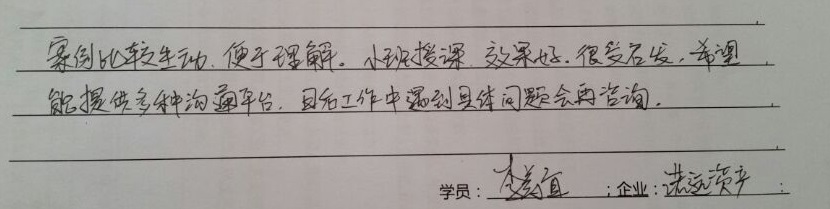 案例比较生动、便于理解。小班授课、效果好。很受启发,希望
能提供多种沟通平台,日后工作中遇到具体问题会再咨询。
学员: ;企业: 资产 ;